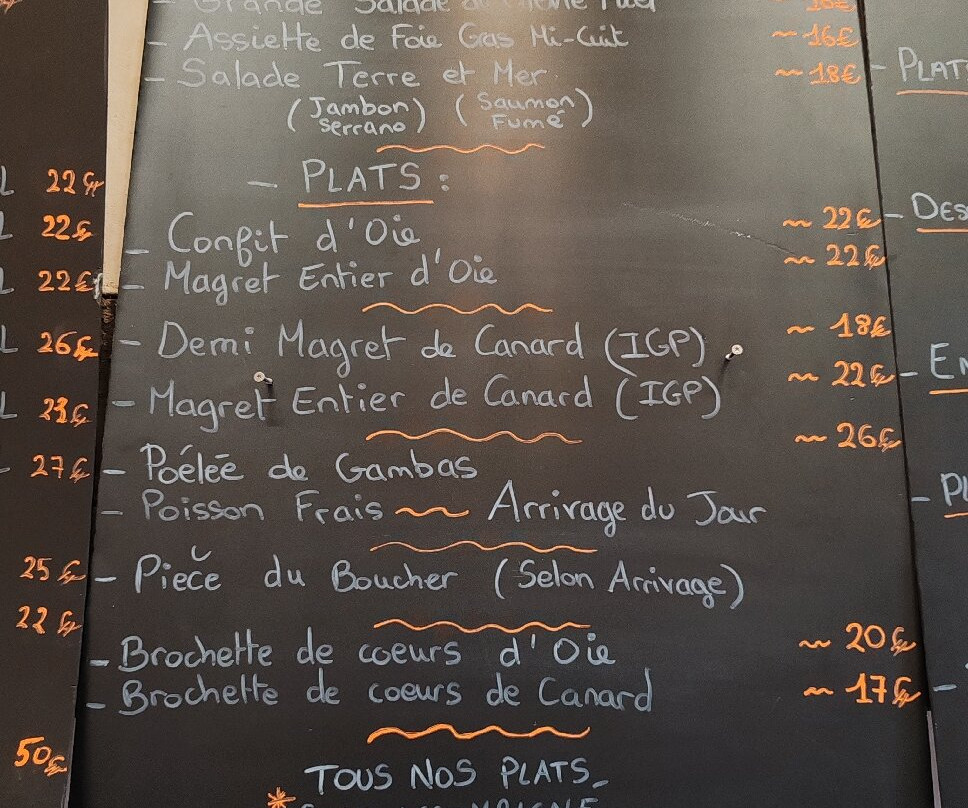 - Grande Salade
- Assiette de Foie Gras Mi-Cuit ~ 16€
- Salade Terre et Mer ~ 18€
(Jambon Serrano) (Saumon Fumé)
- PLATS :
- Confit d'Oie ~ 22€
- Magret Entier d'Oie ~ 22€
- Demi Magret de Canard (IGP) ~ 18€
- Magret Entier de Canard (IGP) ~ 22€
- Poélée de Gambas ~ 26€
- Poisson Frais ~ Arrivage du Jour
- Piece du Boucher (Selon Arrivage)
- Brochette de coeurs d'Oie ~ 20€
- Brochette de coeurs de Canard ~ 17€
TOUS NOS PLATS
22€
22€
22€
26€
27€
25€
22€
50€